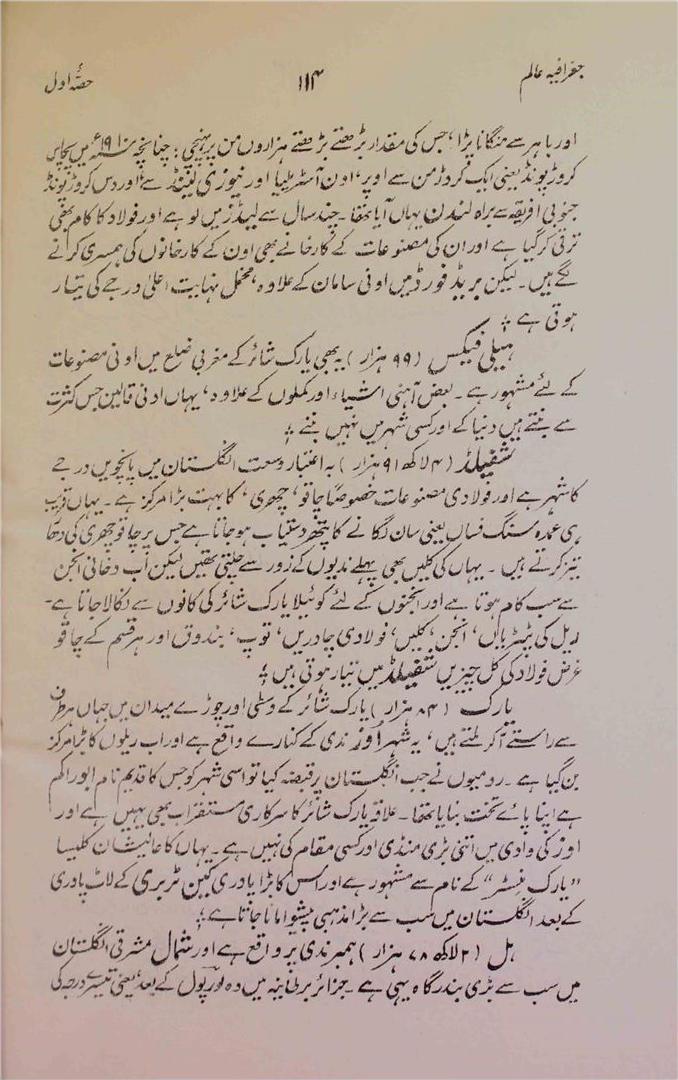 جغرافیہ عالم
۱۱۴
حصّہ اول
اور باہر سے منگانا پڑا، جس کی مقدار بڑھتے بڑھتے ہزاروں من پر پہنچی؛ چنانچہ سنہ ۱۹۱۰ء میں پچاس
کروڑ پونڈ یعنی ایک کروڑ من سے اوپر، اون آسٹریلیا اور نیوزی لینڈ سے، اور دس کروڑ پونڈ
جنوبی افریقہ سے براہ لندن یہاں آیا تھا۔ چند سال سے لیڈز میں لوہے اور فولاد کا کام بھی
ترقی کر گیا ہے اور ان کی مصنوعات کے کارخانے بھی اون کے کارخانوں کی ہمسری کرنے
لگے ہیں۔ لیکن بریڈفورڈ میں اونی سامان کے علاوہ، مخمل نہایت اعلیٰ درجے کی تیار
ہوتی ہے ؛
ہیلی فیکس (۹۹ ہزار) یہ بھی یارک شائر کے مغربی ضلع میں اونی مصنوعات
کے لئے مشہور ہے۔ بعض آہنی اشیاء اور کملوں کے علاوہ، یہاں اونی قالین جس کثرت
سے بنتے ہیں دنیا کے اور کسی شہر میں نہیں بنتے ؛
شفیلڈ (۴ لاکھ ۹۱ ہزار) بہ اعتبار وسعت انگلستان میں پانچویں درجے
کا شہر ہے اور فولادی مصنوعات خصوصاً چاقو، چھری، کا بہت بڑا مرکز ہے۔ یہاں قریب
ہی عمدہ سنگ فساں یعنی سان لگانے کا پتھر دستیاب ہو جاتا ہے جس پر چاقو چھری کی دھار
تیز کرتے ہیں۔ یہاں کی کلیں بھی پہلے ندیوں کے زور سے چلتی تھیں لیکن اب دخانی انجن
سے سب کام ہوتا ہے اور انجنوں کے لئے کوئیلا یارک شائر کی کانوں سے نکالا جاتا ہے۔
ریل کی پٹریاں، انجن، کلیں، فولادی چادریں، توپ، بندوق اور ہر قسم کے چاقو
غرض فولاد کی کل چیزیں شفیلڈ میں تیار ہوتی ہیں ؛
یارک (۸۴ ہزار) یارک شائر کے وسطی اور چوڑے میدان میں جہاں ہر طرف
سے راستے آکر ملتے ہیں، یہ شہر اُوز ندی کے کنارے واقع ہے اور اب ریلوں کا بڑا مرکز
بن گیا ہے۔ رومیوں نے جب انگلستان پر قبضہ کیا تو اسی شہر کو جس کا قدیم نام ابوراکم
ہے اپنا پائے تخت بنایا تھا۔ علاقہ یارک شائر کا سرکاری مستقراب بھی یہیں ہے اور
اوز کی وادی میں اتنی بڑی منڈی اور کسی مقام کی نہیں ہے۔ یہاں کا عالیشان کلیسا
"یارک منسٹر" کے نام سے مشہور ہے اور اس کا بڑا پادری کین ٹربری کے لاٹ پادری
کے بعد انگلستان میں سب سے بڑا مذہبی پیشوا مانا جاتا ہے ؛
ہل (۲ لاکھ ۷۸ ہزار) ہمبر ندی پر واقع ہے اور شمال مشرقی انگلستان
میں سب سے بڑی بندرگاہ یہی ہے۔ جزائر برطانیہ میں وہ لورپول کے بعد، یعنی تیسرے درجہ کی